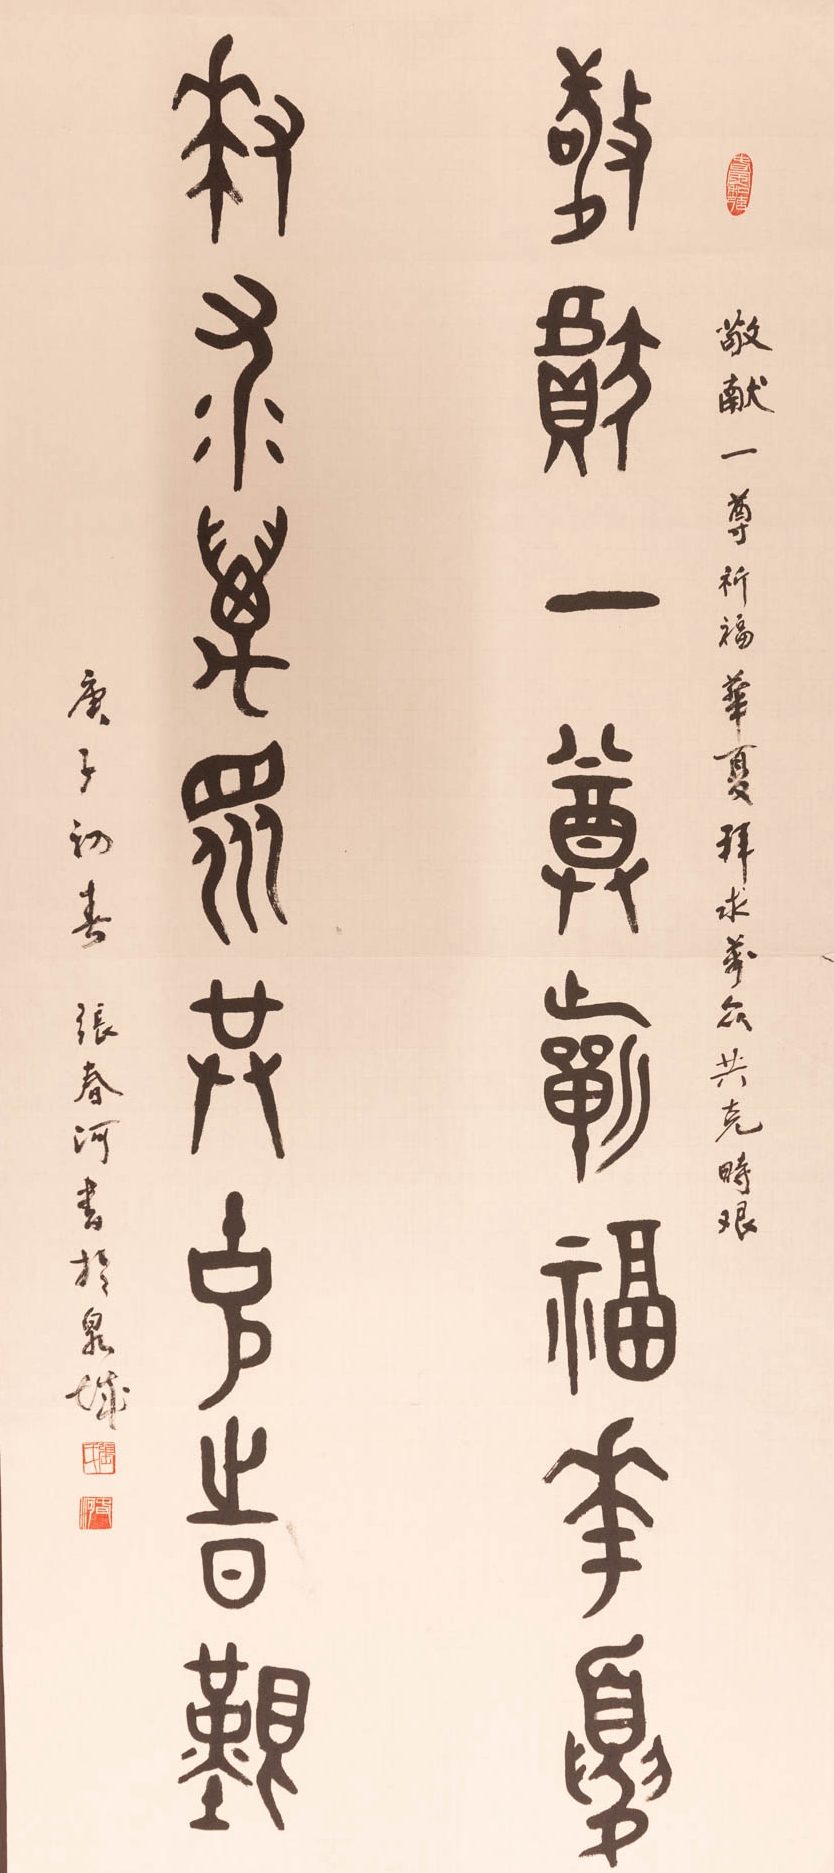 敬獻一尊祈福華夏拜求萬眾共克時艱
敬獻一尊祈福華夏
拜求萬眾共克時艱
庚子初春 張春河書於泉城